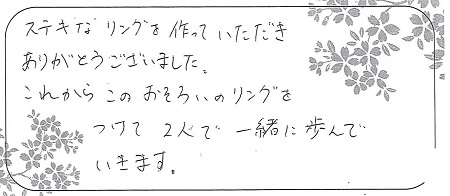 ステキな リングを 作って いただき
ありがとうございました。
これから この おそろいのリングを
つけて 2人で 一緒に 歩んで
いきます。